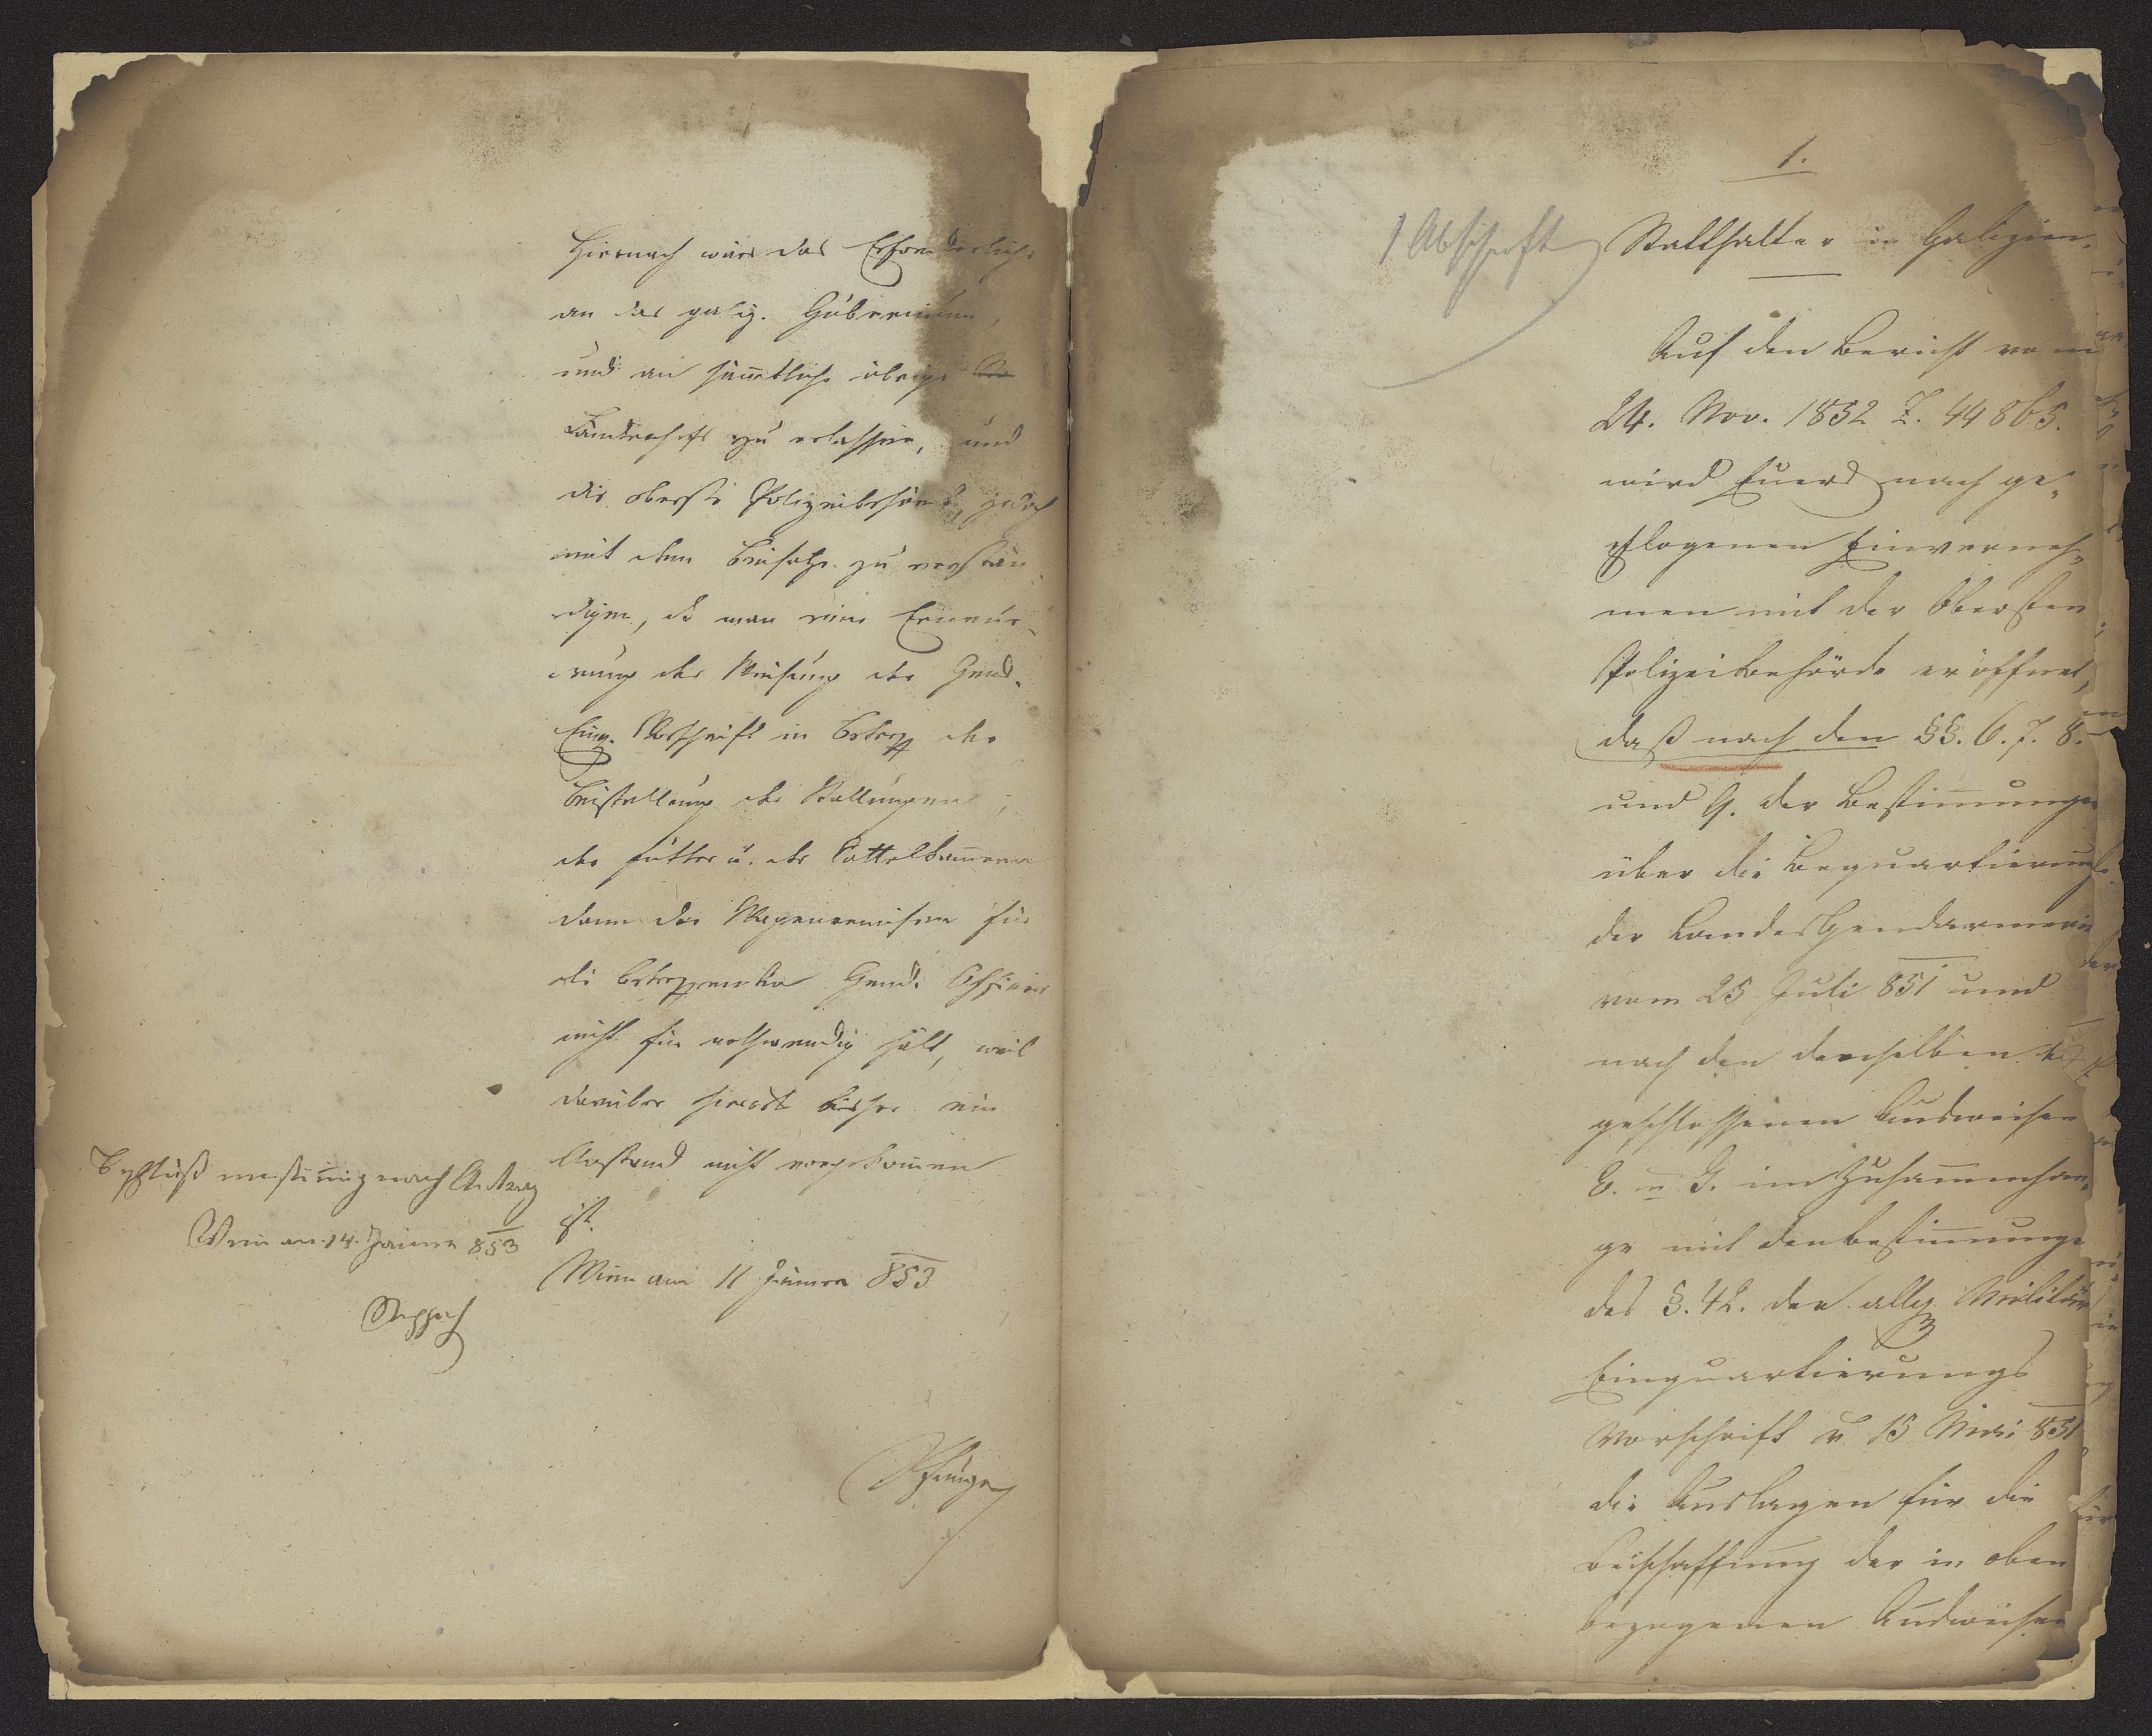 Hiernach wäre das Erforderliche
an das galiz. Gubernium,
und an sämtliche übrige
Länderchefs zu erlassen, und
die oberste Polizeibehörde, jedoch
mit dem Beisatze zu verstän
digen, daß man eine Erneue-
erung der Weisung der Gend.
Einq. Vorschrift in Betreff der
Beistellung der Stallungen,
der Futter u. der Sattelkammern
dann der Wagenremisen für
die betreffenden Gend. Offiziere
nicht für nothwendig hält, weil
darüber hierorts bisher ein
Anstand nicht vorgekommen
ist.
Wien am 11 Jänner 853
Beschluß einstimig nach Antrag
Wien am 14. Jänner 853
1.
1 Abschrift
Statthalter in Galizien.
Auf den Bericht vom
24. Nov. 1852 Z. 44865.
wird Euer nach ge-
pflogenen Einverneh-
men mit der Obersten
Polizeibehörde eröffnet,
daß nach den §§. 6. 7. 8.
und 9. der Bestimmungen
über die Bequartierung
der Landes Gendarmerie
vom 25 Juli 851 und
nach den denselben
geschlossenen Ausweisen
E. u G. im Zusammenhan-
ge mit den Bestimmungen
des §. 42. der allg. Militär
Einquartierungs
Vorschrift v 15 Mai 851
die Auslagen für die
Beischaffung der in oben
bezogenen Ausweisen